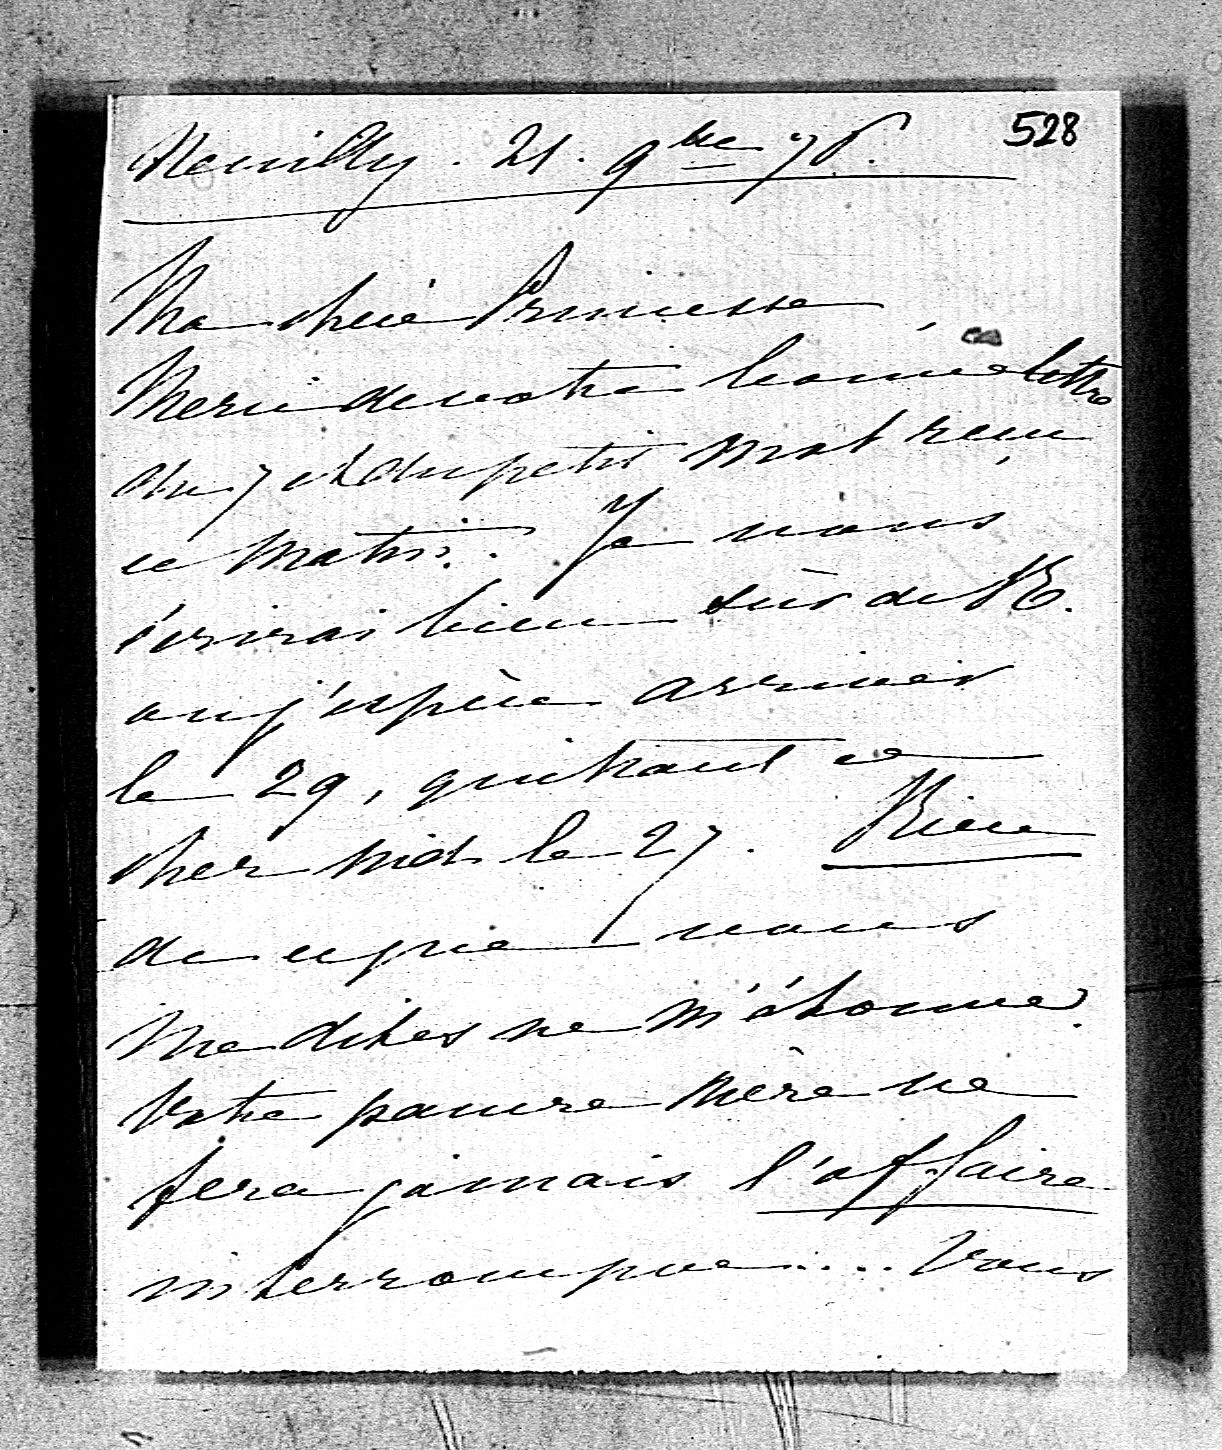 528
Neuilly. 21. 9bre 76.
Ma chère Princesse,
Merci de votre bonne lettre
du 7 et du petit mot reçu
ce matin. Je vous
écrirai bien sûr de R.
où j'espère arriver
le 29, quittant ce
cher nid le 27. Rien
de ce que vous
me dites ne m'étonne.
Votre pauvre mère ne
fera jamais l'affaire
interrompue.... Vous